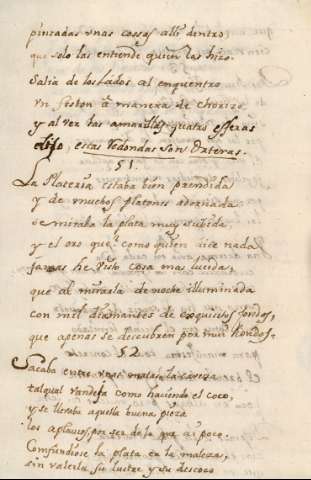 pintadas unas cossas alli dentro,
que solo las entiende quien las hizo.
Salia de los Lados al enquentro
un feston a manera de chorizo
y al ver las amarillas quatro esferas
dijo, estas redondas son orteras.
51.
La Plateria estaba bien prendida
y de muchos platones adornada
se miraba la plata muy subida
y el oro que como quien dice nada
jamas he visto cosa mas lucida,
que al mirarla de noche illuminada
con mil diamandes de exquicitos fondos,
que apenas se descubren por mui hondos.
52.
Sacaba entre unas matas la caveza
tal qual vandeja como haciendo el coco,
y se llevaba aquella buena pieza
los aplausos por ser de la que ai poco.
Confundiose la plata en la maleza,
sin valerla su lustre y su descoco